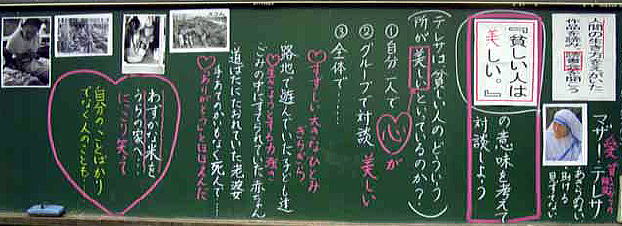 人間の生き方をえがいた
作品を読み、読書座談会を開こう
マザー・テレサ
愛
あきらめない
助ける
見すてない
『貧しい人は
美しい。』
の意味を考えて
対談しよう
テレサは「貧しい人のどういう
所が美しいといっているのか?」
①自分一人で
②グループで対談
③全体で……
心が
美しい
すずしい大きなひとみ
きらきら
路地で遊んでいた子ども達
生きようとする力強さ
ごみの中にすてられていた赤ちゃん
道ばたにたおれていた老婆
手あてのかいもなく死んで…
「ありがとう」とほほえんだ
わずかな米を
うらの家へ…
にっこり笑って
自分のことばかり
でなく人のことも!